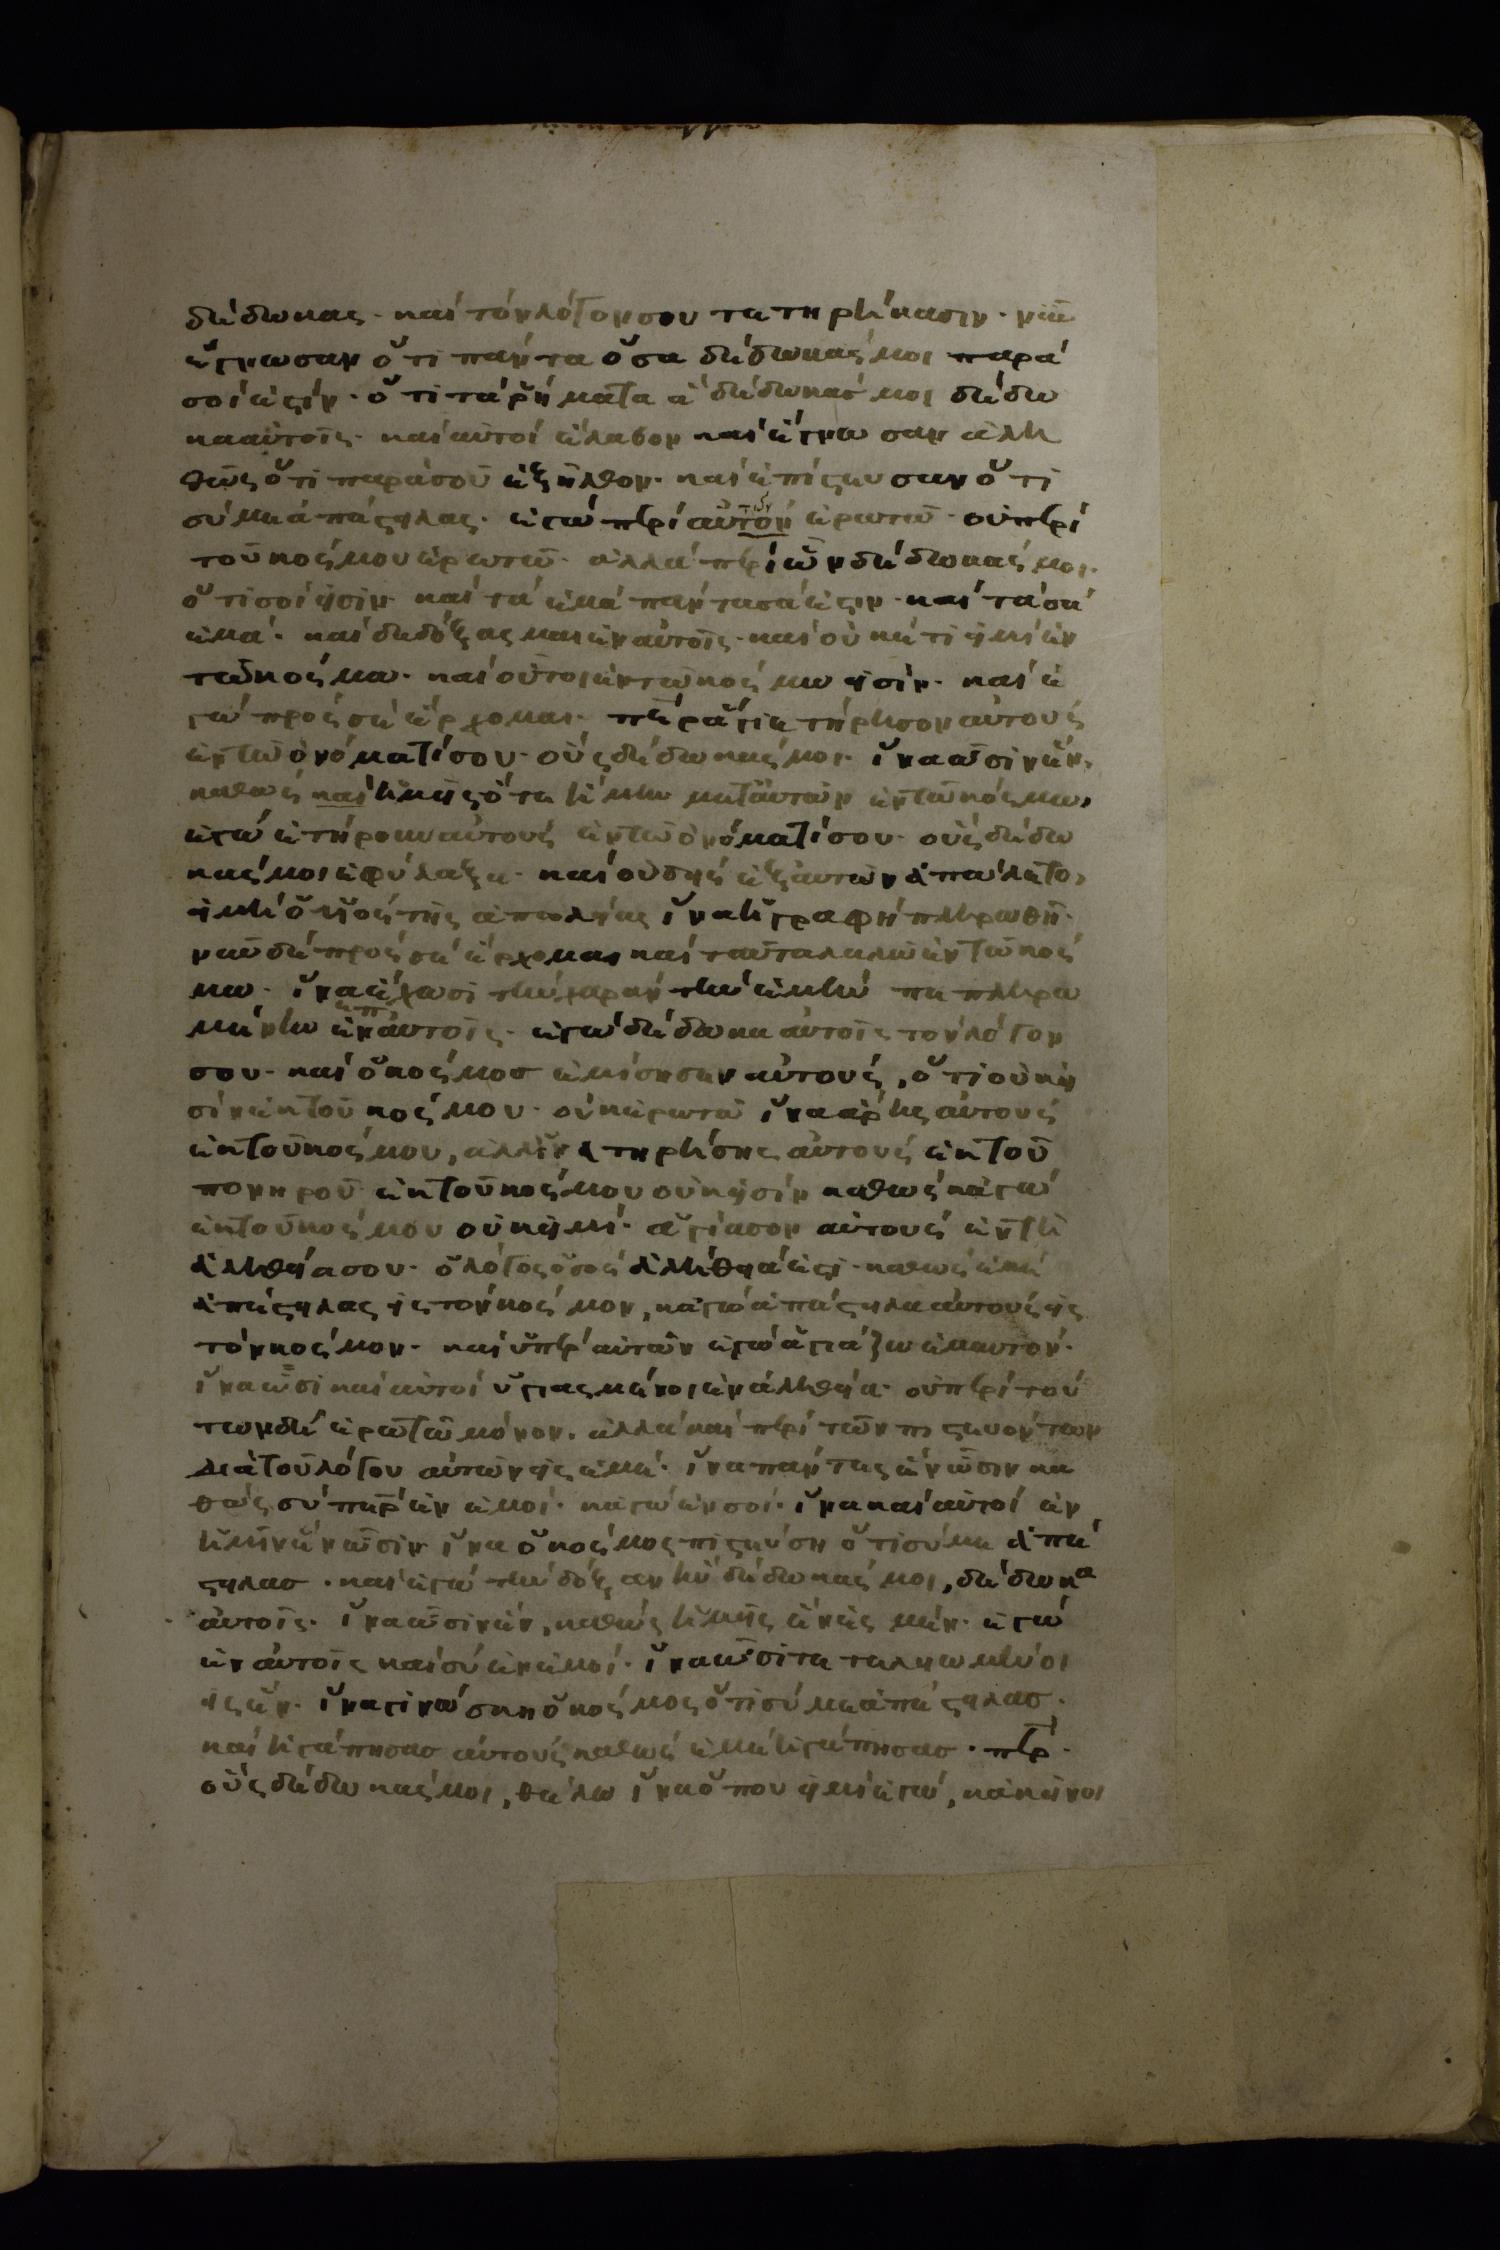 δέδωκας· καὶ τὸν λόγον σου τετηρήκασιν· νῦν
ἔγνωσαν ὅτι πάντα ὅσα δέδωκάς μοι παρὰ
σοί ἐστίν· ὅτι τὰ ῥήματα ἃ δέδωκάς μοι δέδω
κα αὐτοῖς· καὶ αὐτοὶ ἔλαβον καὶ ἔγνωσαν ἀλη
θῶς ὅτι παρὰ σοῦ ἐξῆλθον· καὶ ἐπίστευσαν ὅτι
σύ με ἀπέστειλας· ἐγὼ περὶ αὐτόν ἐρωτῶ· οὐ περὶ
τοῦ κόσμου ἐρωτῶ· ἀλλὰ περὶ ὧν δέδωκάς μοι·
ὅτι σοί εἰσιν· καὶ τὰ ἐμὰ πάντα σά ἐστιν· καὶ τὰ σὰ
ἐμά· καὶ δεδόξασμαι ἐν αὐτοῖς· καὶ οὐκέτι εἰμὶ ἐν
τῷ κόσμω· καὶ οὗτοι ἐν τῷ κόσμω εἰσίν· καὶ ἐ
γὼ πρός σε ἔρχομαι· περ ἅγιε τήρησον αὐτοὺς
ἐν τῷ ὀνόματί σου· οὓς δέδωκάς μοι· ἵνα ὦσιν ἕν,
καθὼς καὶ ἡμεῖς ὅτε ἤμην μετ' αὐτῶν ἐν τῷ κόσμω,
ἐγὼ ἐτήρουν αὐτοὺς ἐν τῷ ὀνόματί σου· οὓς δέδω
κάς μοι ἐφύλαξα· καὶ οὐδεὶς ἐξ αὐτῶν ἀπώλετο,
εἰ μὴ ὁ υἱὸς τῆς ἀπωλείας ἵνα ἡ γραφὴ πληρωθῆ·
νῦν δὲ πρός σε ἔρχομαι καὶ ταῦτα λαλῶ ἐν τῷ κόσ
μω· ἵνα ἔχωσι τὴν χαρὰν τὴν ἐμὴν πεπληρω
μένην ἐν αὐτοῖς· ἐγὼ δέδωκα αὐτοῖς τὸν λόγον
σου· καὶ ὁ κόσμοσ ἐμίσησεν αὐτούς, ὅτι οὐκ εἰ
σὶν ἐκ τοῦ κόσμου· οὐκ ἐρωτῶ ἵνα ἄρης αὐτοὺς
ἐκ τοῦ κόσμου, ἀλλ' ἵνα τηρήσης αὐτοὺς ἐκ τοῦ
πονηροῦ ἐκ τοῦ κόσμου οὐκ εἰσὶν καθὼς κἀγὼ
ἐκ τοῦ κόσμου οὐκ εἰμί· ἁγίασον αὐτοὺς ἐν τῇ
ἀληθεία σου· ὁ λόγος ὁ σὸς ἀλήθειά ἐστι· καθὼς ἐμὲ
ἀπέστειλας εἰς τὸν κόσμον, κἀγὼ ἀπέστειλα αὐτοὺς εἰς
τὸν κόσμον· καὶ ὑπὲρ αὐτῶν ἐγὼ ἁγιάζω ἐμαυτόν·
ἵνα ὦσι καὶ αὐτοὶ ἡγιασμένοι ἐν ἀληθεία· οὐ περὶ τού
των δὲ ἐρωτῶ μόνον· ἀλλὰ καὶ περὶ τῶν πιστευόντων
διὰ τοῦ λόγου αὐτῶν εἰς ἐμέ· ἵνα πάντες ἓν ὦσιν κα
θὼς σὺ περ ἐν ἐμοί· κἀγὼ ἐν σοί· ἵνα καὶ αὐτοὶ ἐν
ἡμῖν ἓν ὦσιν ἵνα ὁ κόσμος πιστεύση ὅτι σύ με ἀπέ
στειλασ· καὶ ἐγὼ τὴν δόξαν ἣν δέδωκάς μοι, δέδωκα
αὐτοῖς· ἵνα ὦσιν ἕν, καθὼς ἡμεῖς ἕν ἐσμέν· ἐγὼ
ἐν αὐτοῖς καὶ σὺ ἐν ἐμοί· ἵνα ὦσι τετελειωμένοι
εἰς ἕν· ἵνα γινώσκη ὁ κόσμος ὅτι σύ με ἀπέστειλασ·
καὶ ἠγάπησασ αὐτοὺς καθὼς ἐμὲ ἠγάπησασ· περ·
οὓς δέδωκάς μοι, θέλω ἵνα ὅπου εἰμὶ ἐγώ, κἀκεῖνοι